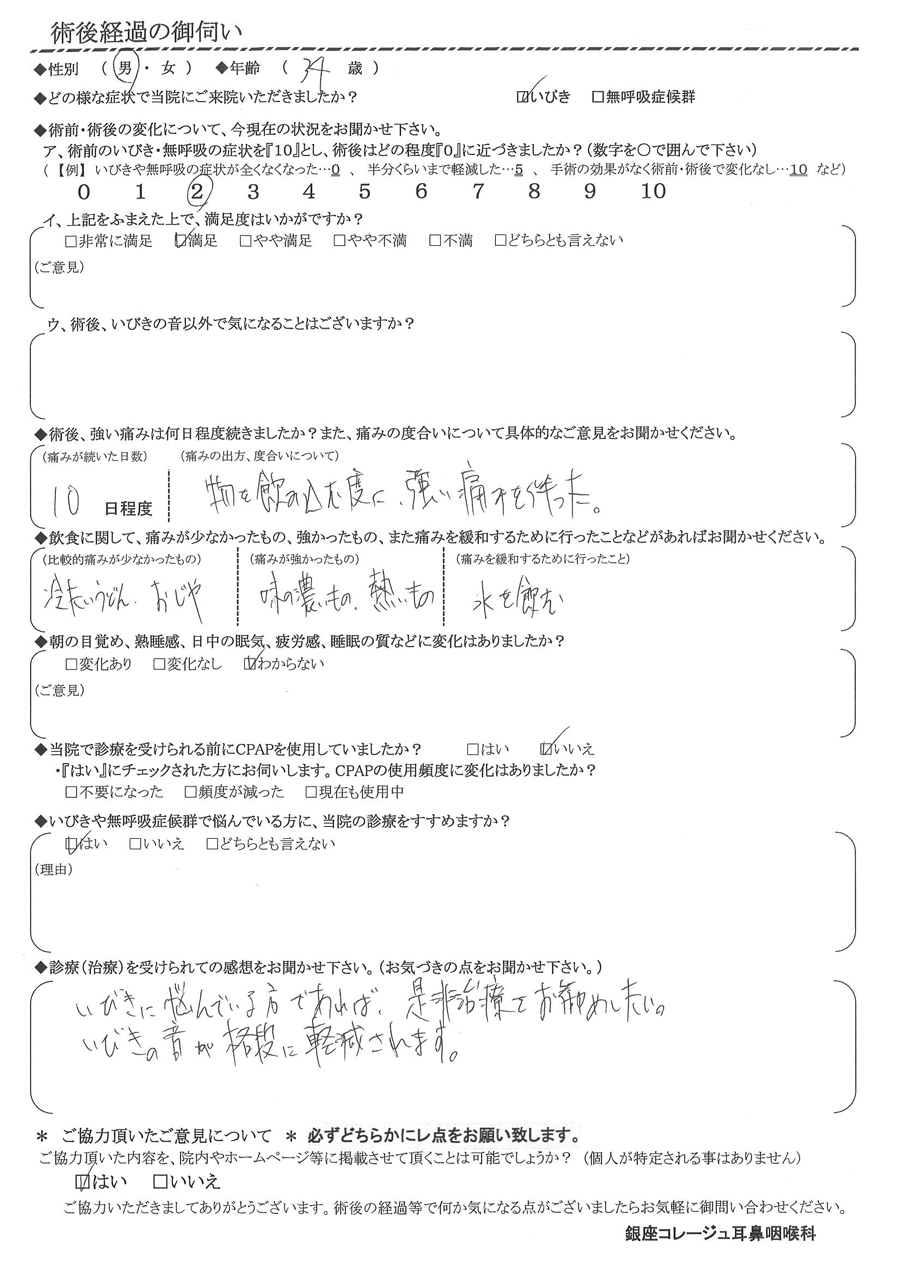 術後経過の御伺い
◆性別 （ 男 ・ 女 ） ◆年齢 （ 34 歳 ）
◆どの様な症状で当院にご来院いただきましたか？ ☑いびき □無呼吸症候群
◆術前・術後の変化について、今現在の状況をお聞かせ下さい。
ア、術前のいびき・無呼吸の症状を『10』とし、術後はどの程度『0』に近づきましたか？（数字を〇で囲んで下さい）
（【例】 いびきや無呼吸の症状が全くなくなった…0 、 半分くらいまで軽減した…5 、 手術の効果がなく術前・術後で変化なし…10 など）
0 1 2 3 4 5 6 7 8 9 10
イ、上記をふまえた上で、満足度はいかがですか？
□非常に満足 ☑満足 □やや満足 □やや不満 □不満 □どちらとも言えない
（ご意見）
ウ、術後、いびきの音以外で気になることはございますか？
◆術後、強い痛みは何日程度続きましたか？また、痛みの度合いについて具体的なご意見をお聞かせください。
（痛みが続いた日数） （痛みの出方、度合いについて）
10 日程度 物を飲み込む度に、強い痛みを伴った。
◆飲食に関して、痛みが少なかったもの、強かったもの、また痛みを緩和するために行ったことなどがあればお聞かせください。
（比較的痛みが少なかったもの） （痛みが強かったもの） （痛みを緩和するために行ったこと）
冷たいうどん、おじや 味の濃いもの、熱いもの 水を飲む
◆朝の目覚め、熟睡感、日中の眠気、疲労感、睡眠の質などに変化はありましたか？
□変化あり □変化なし ☑わからない
（ご意見）
◆当院で診療を受けられる前にCPAPを使用していましたか？ □はい ☑いいえ
・『はい』にチェックされた方にお伺いします。CPAPの使用頻度に変化はありましたか？
□不要になった □頻度が減った □現在も使用中
◆いびきや無呼吸症候群で悩んでいる方に、当院の診療をすすめますか？
☑はい □いいえ □どちらとも言えない
（理由）
◆診療（治療）を受けられての感想をお聞かせ下さい。（お気づきの点をお聞かせ下さい。）
いびきに悩んでいる方であれば、是非治療をお勧めしたい。
いびきの音が格段に軽減されます。
＊ ご協力頂いたご意見について ＊ 必ずどちらかにレ点をお願い致します。
ご協力頂いた内容を、院内やホームページ等に掲載させて頂くことは可能でしょうか？ （個人が特定される事はありません）
☑はい □いいえ
ご協力いただきましてありがとうございます。術後の経過等で何か気になる点がございましたらお気軽に御問い合わせください。
銀座コレージュ耳鼻咽喉科